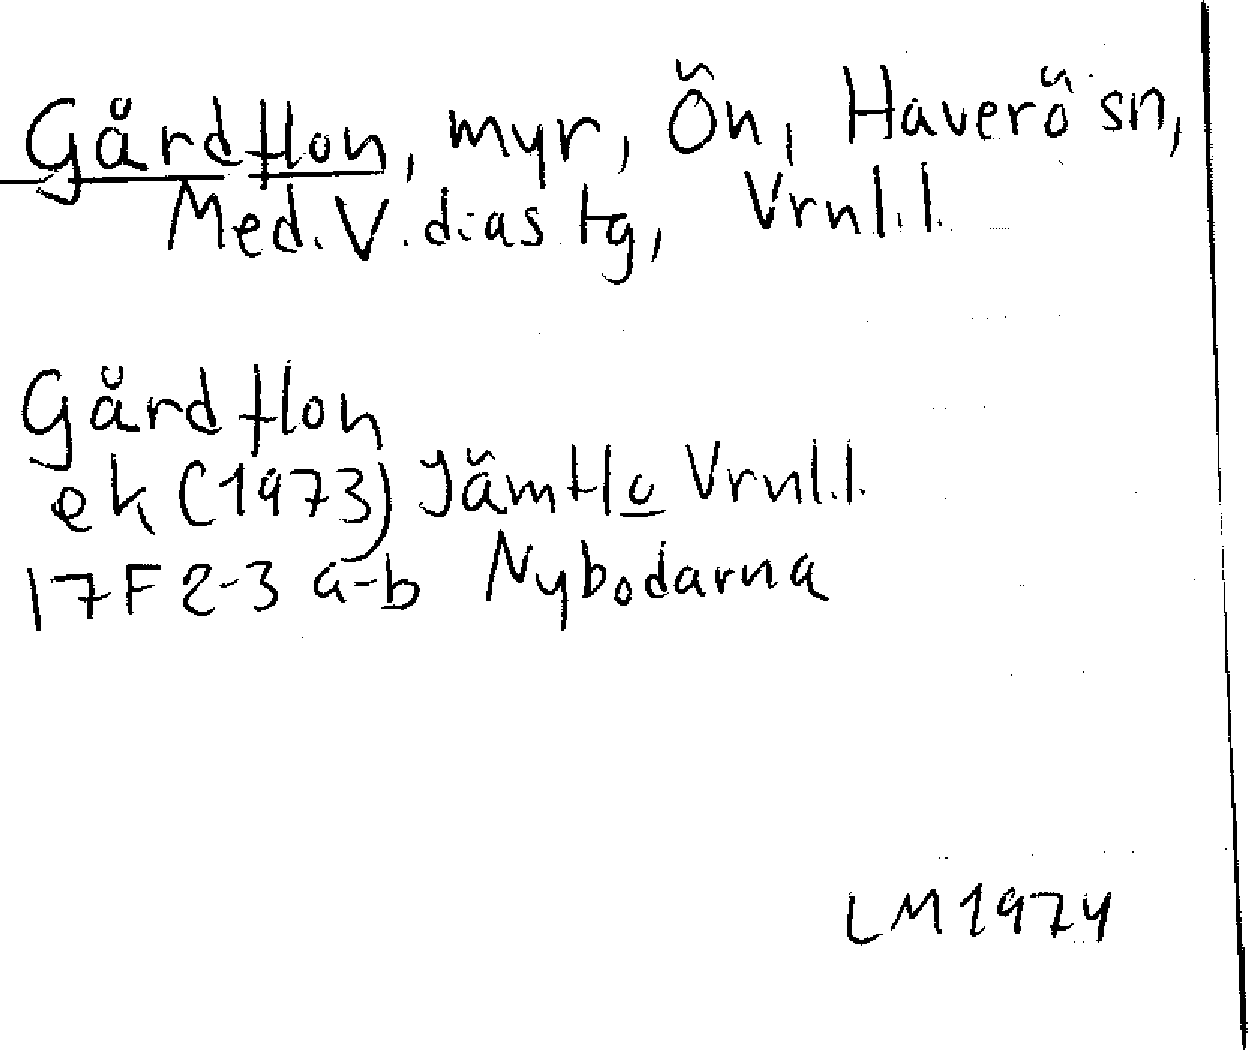 Gårdflon, myr, Ön, Haverö sn,
Med. V. d:as tg, Vrnl. l.
Gårdflon
ek (1973) Jämtl o Vrnl. l.
17F 2-3 a-b Nybodarna
LM 1974